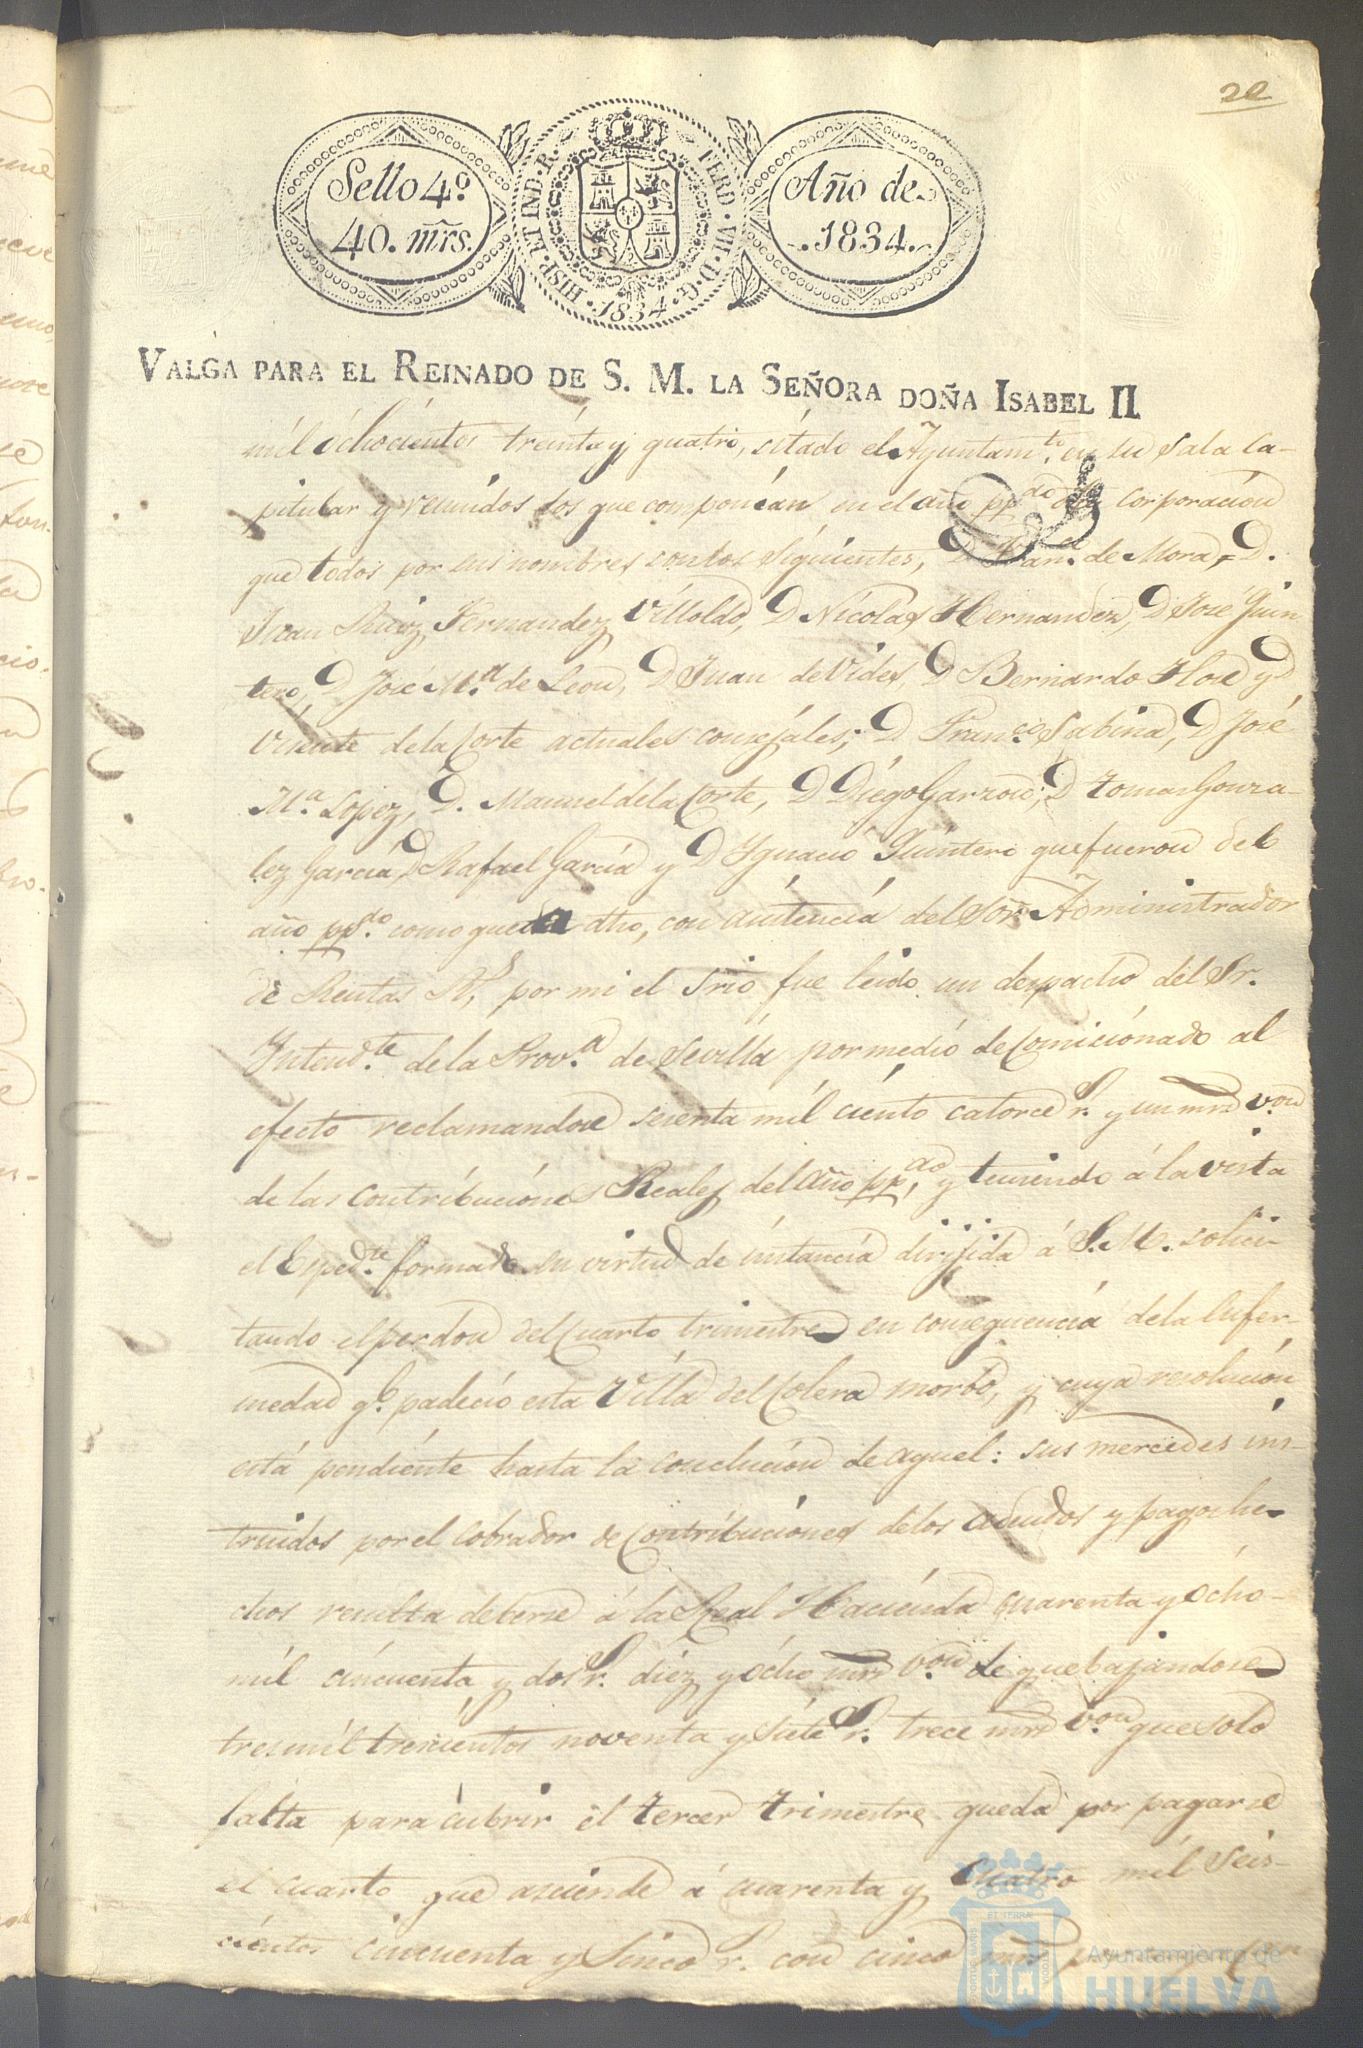 22
Sello 4º
40. mrs.
HISP. ET IND. R. FERD. VII. D. G. 1834.
Año de
1834.
VALGA PARA EL REINADO DE S. M. LA SEÑORA DOÑA ISABEL II
mil óchocientos treinta y quatro, sitado el Ayuntamto. en su Sala Ca-
pitular y reunidos los que componian en el año ppdo. la Corporacion
que todos por sus nombres son los Siguientes, D. Fran. de Mora, D.
Juan Ruiz Fernandez Villoldo, D Nicolas Hernandez, D José Quin
tero, D José Ma. de Leon, D Juan de Vides, D Bernardo Flor y D
Vicente de la Corte actuales concejales; D Franco. Sabina, D José
Ma. Lopez, D. Manuel de la Corte, D Diego Garzon, D Tomas Gonza-
lez Garcia, D Rafael Garcia y D Ygnacio Quintero que fueron del
año ppdo. como queda dho, con asistencia del Sor. Administrador
de Rentas Rs, por mi el Srio fue leido un despacho del Sr.
Yntendte. de la Prova. de Sevilla por medio de Comicionado al
efecto reclamandose sesenta mil ciento catorce r. y un mrs von
de las contribuciones Reales del año ppdo, y teniendo á la vista
el Espedte. formado en virtud de instancia dirijida á S. M. solici-
tando el perdon del Cuarto trimestre en consequencia de la Enfer-
medad q. padecio esta Villa del Colera morbo, y cuya resolucion
está pendiente hasta la conclucion de aquel: sus mercedes ins-
truidos por el Cobrador de Contribuciones de los adeudos y pagos he-
chos resulta deberse á la Real Hacienda quarenta y ócho
mil cincuenta y dos r. diez y ócho mrs von de que bajandose
tres mil trescientos noventa y siete r. trece mrs von que solo
falta para cubrir el tercer trimestre queda por pagarse
el cuarto que asciende á cuarenta y cuatro mil Seis-
cientos cincuenta y Sinco r. con cinco mrs
Ayuntamiento de
HUELVA